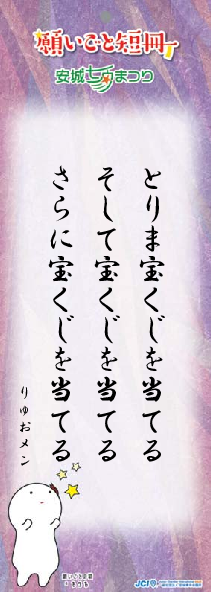 願いごと短冊
安城七夕まつり
とりま宝くじを当てる
そして宝くじを当てる
さらに宝くじを当てる
りゅおメン
願いごと短冊
JCI